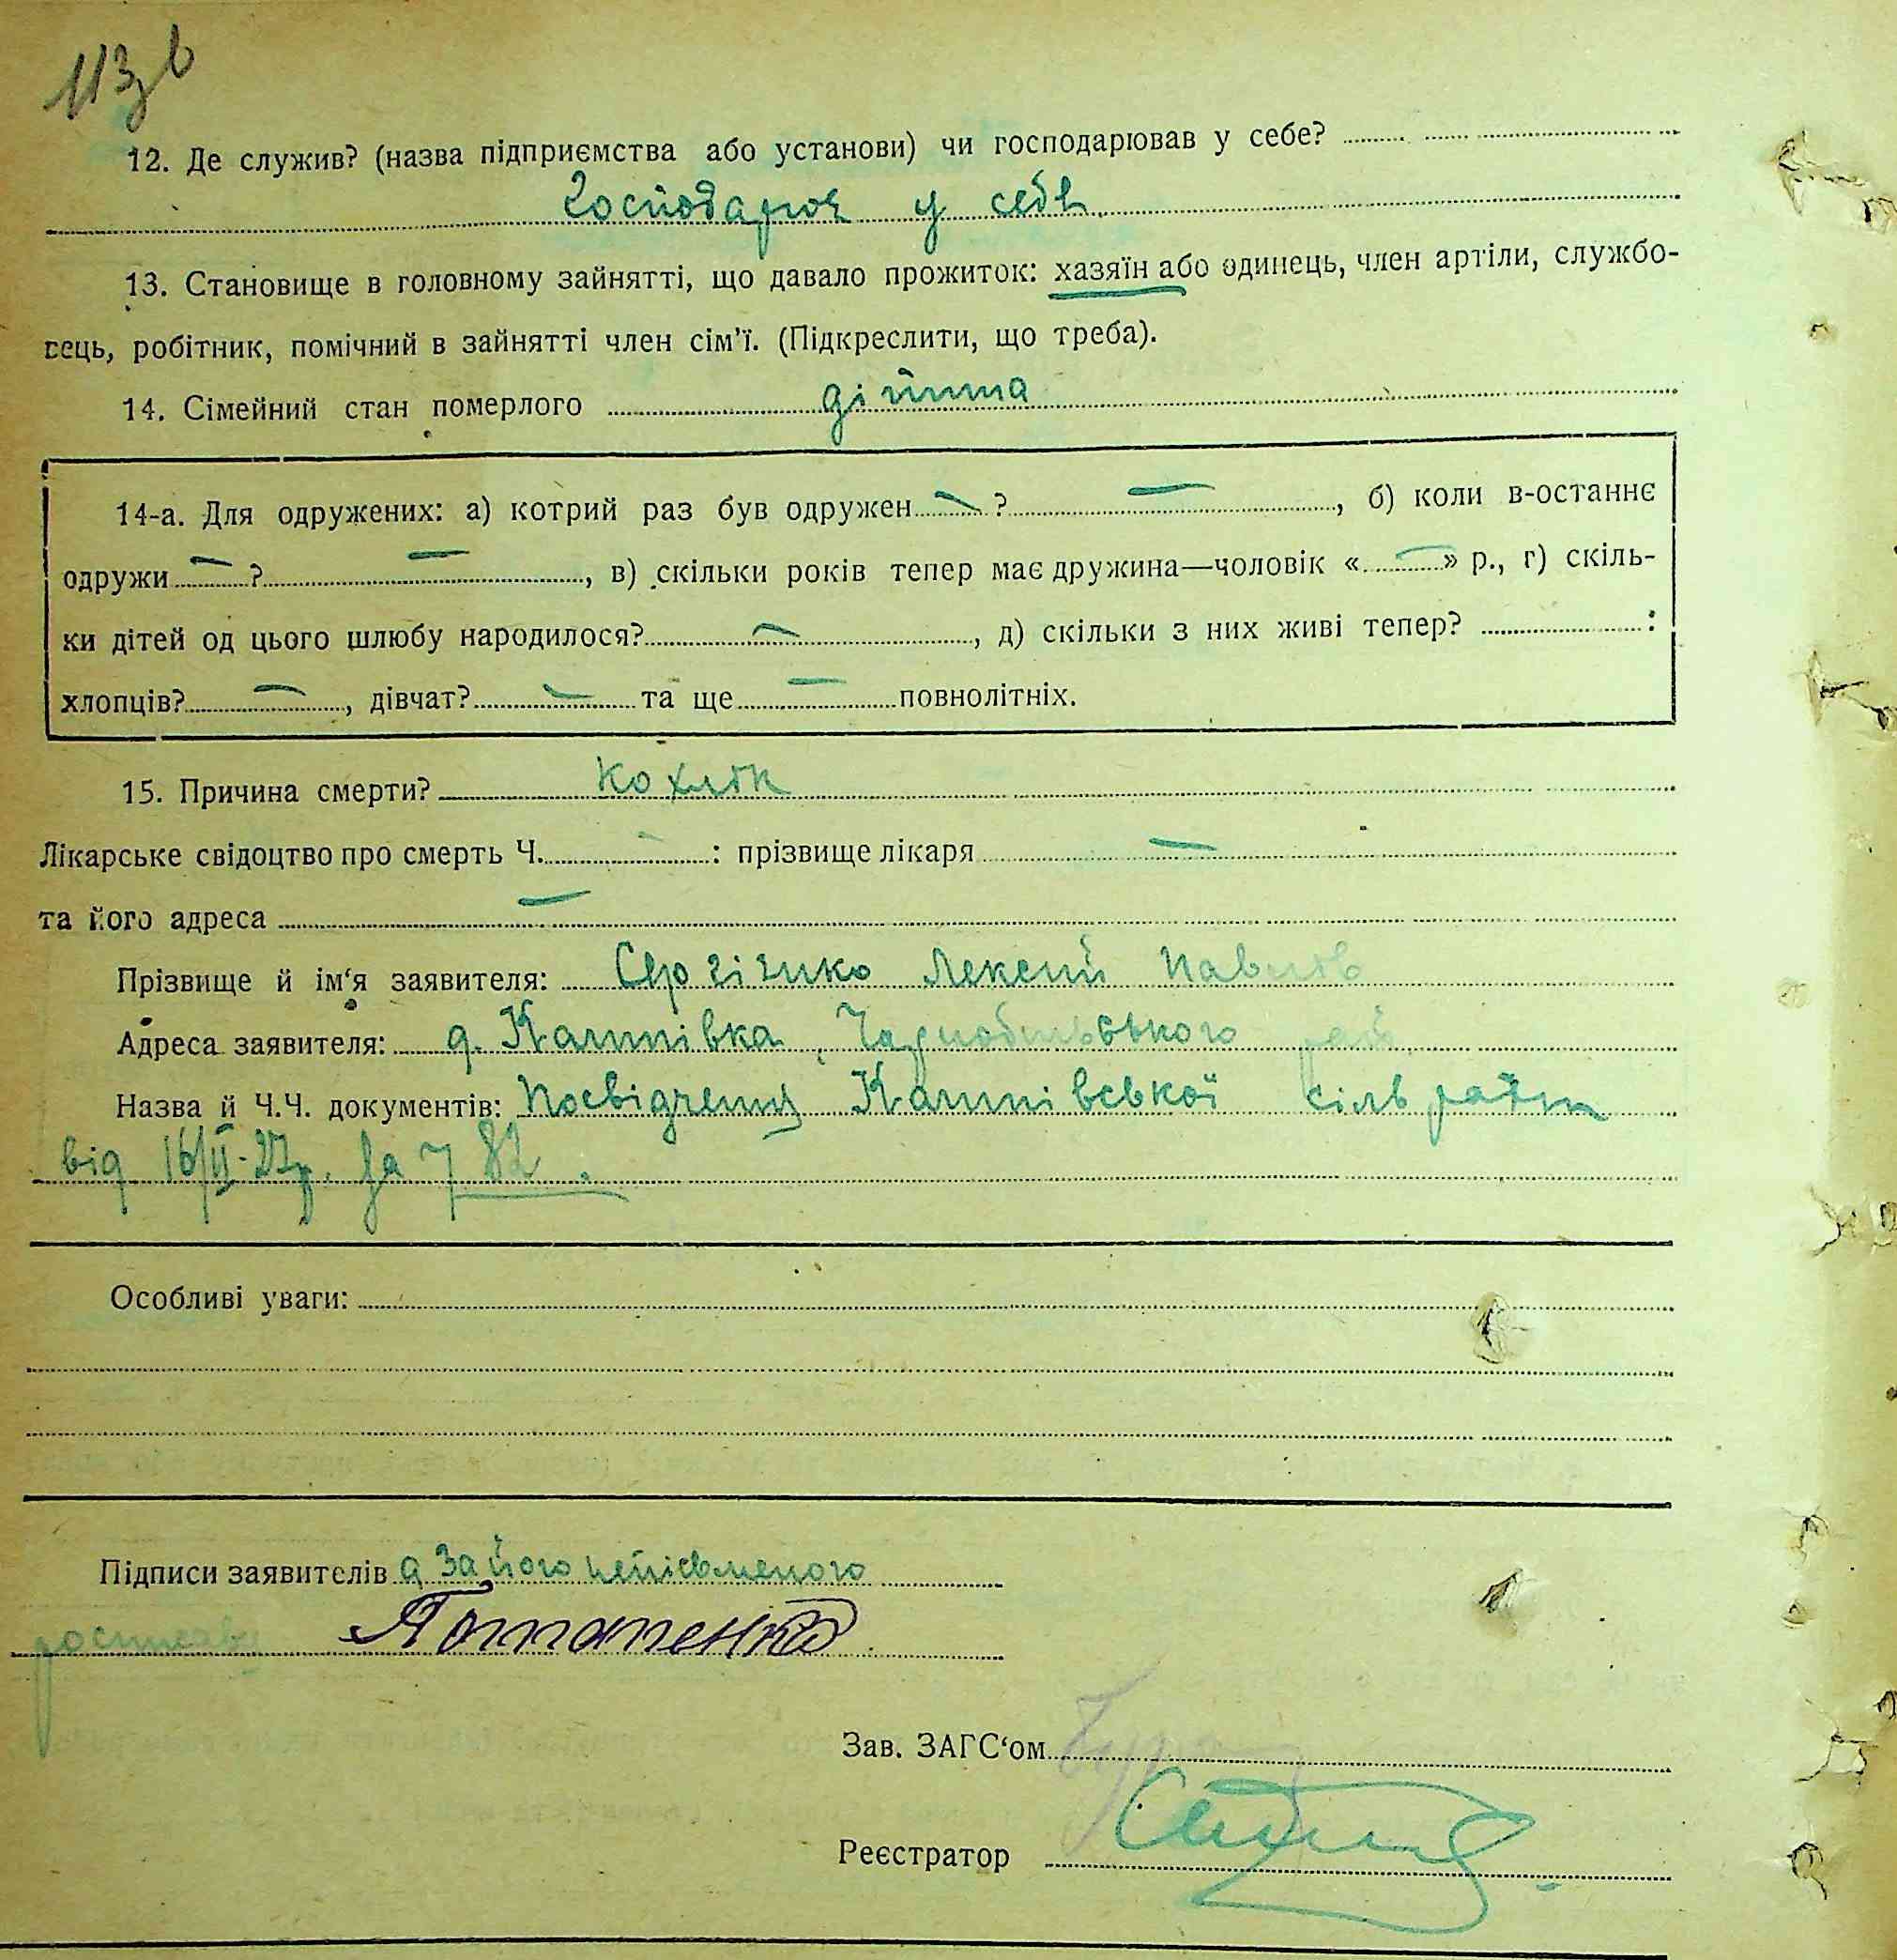 113 в
12. Де служив? (назва підприємства або установи) чи господарював у себе?
Господарює у себе
13. Становище в головному зайнятті, що давало прожиток: хазяїн або одинець, член артіли, службо-
вець, робітник, помічний в зайнятті член сім'ї. (Підкреслити, що треба).
14. Сімейний стан померлого дітина
14-а. Для одружених: а) котрий раз був одружен — ? —, б) коли в-останнє
одружи — ? —, в) скільки років тепер має дружина—чоловік « — » р., г) скіль-
ки дітей од цього шлюбу народилося? —, д) скільки з них живі тепер? :
хлопців? —, дівчат? — та ще — повнолітніх.
15. Причина смерти? коклюк
Лікарське свідоцтво про смерть Ч. — : прізвище лікаря —
та його адреса —
Прізвище й ім'я заявителя: Сергієнко Лексій Павлов
Адреса заявителя: д. Калинівка, Чорнобильського рай.
Назва й Ч.Ч. документів: Посвідченя Калинівської сільради
від 16/II-27р. за Ч 82.
Особливі уваги:
Підписи заявителів а за його неписьменого
росписався Потапенко
Зав. ЗАГС'ом
Реєстратор